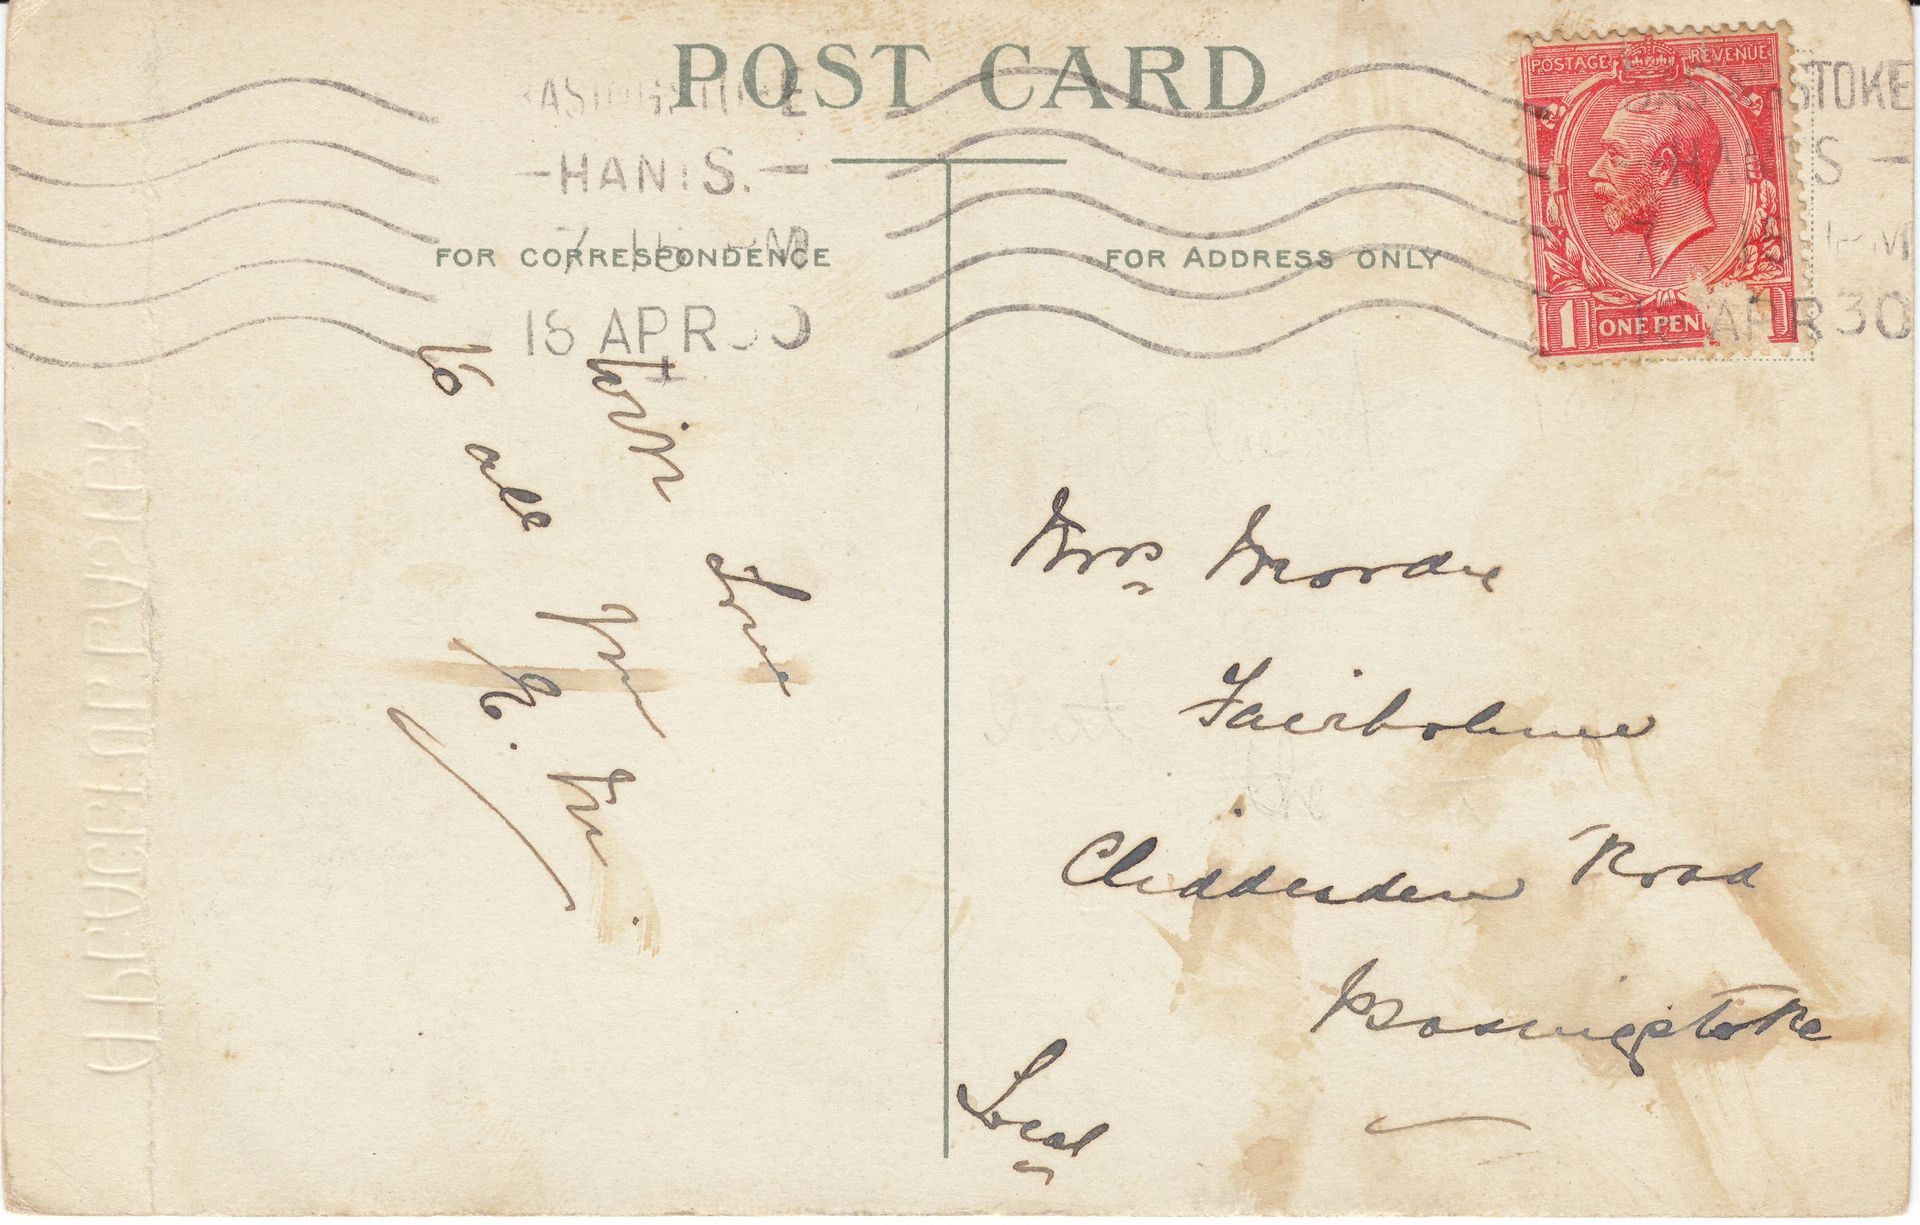 POST CARD
BASINGSTOKE
- HANTS. -
7 15 PM
18 APR 30
FOR CORRESPONDENCE
FOR ADDRESS ONLY
POSTAGE REVENUE
1 ONE PEN
BASINGSTOKE
- HANTS -
7 15 PM
18 APR 30
With Love
to all from
Mrs Moordie
Fairholme
Cliddesden Road
Basingstoke
Local